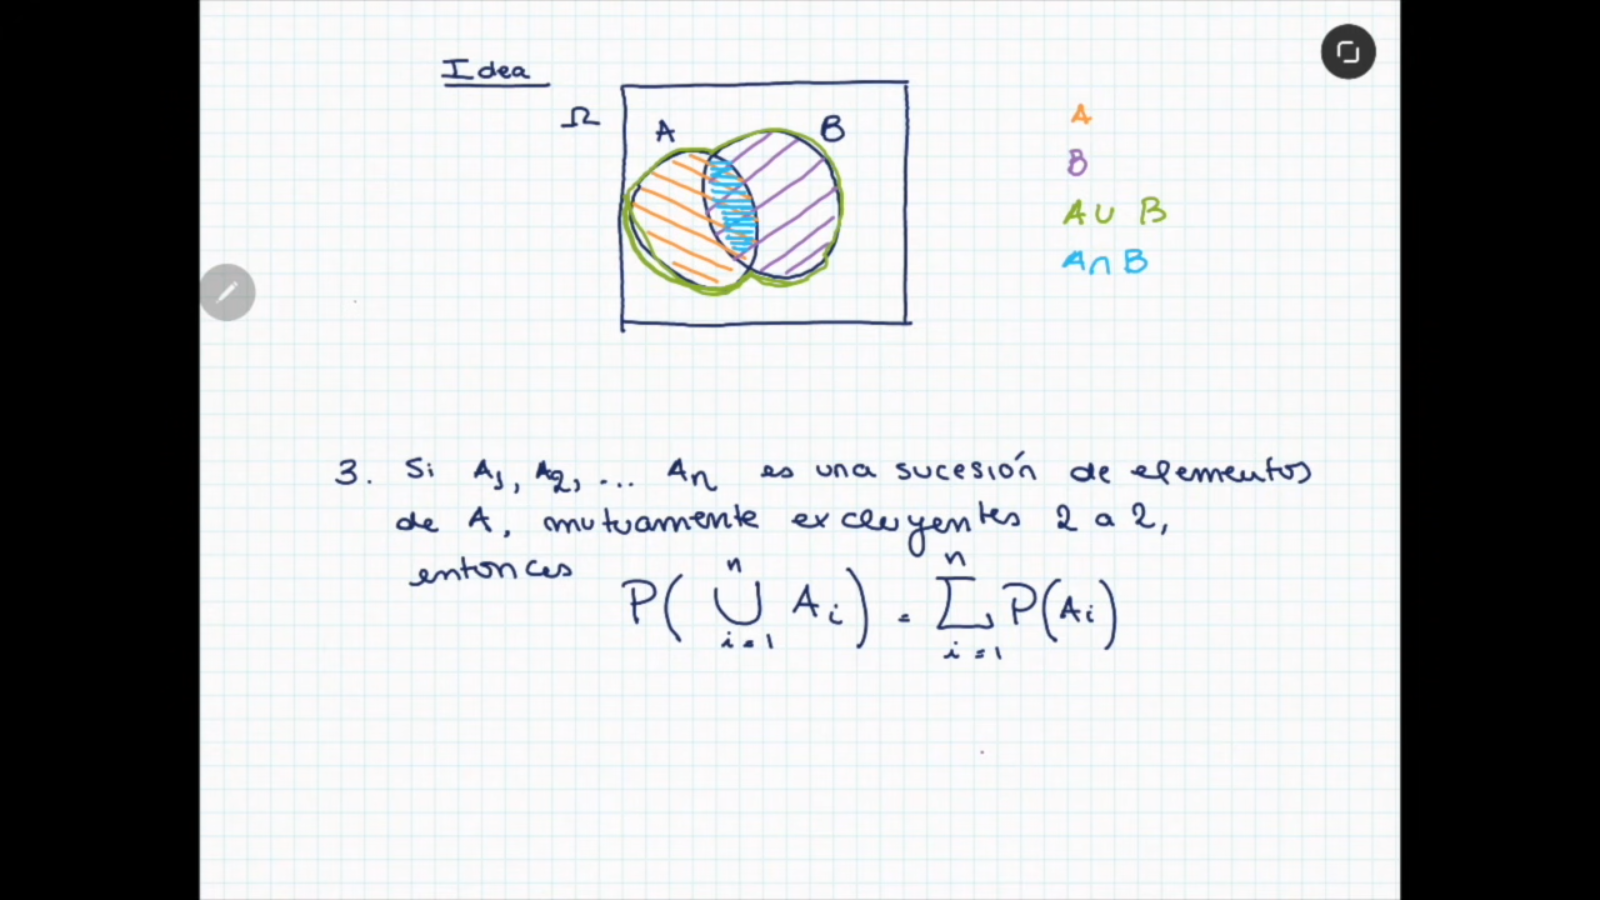 Idea
Ω
A
B
A
B
A∪B
A∩B
3. Si A₁, A₂, ... Aₙ es una sucesión de elementos
de A, mutuamente excluyentes 2 a 2,
entonces
P(⋃ᵢ₌₁ⁿ Aᵢ) = ∑ᵢ₌₁ⁿ P(Aᵢ)